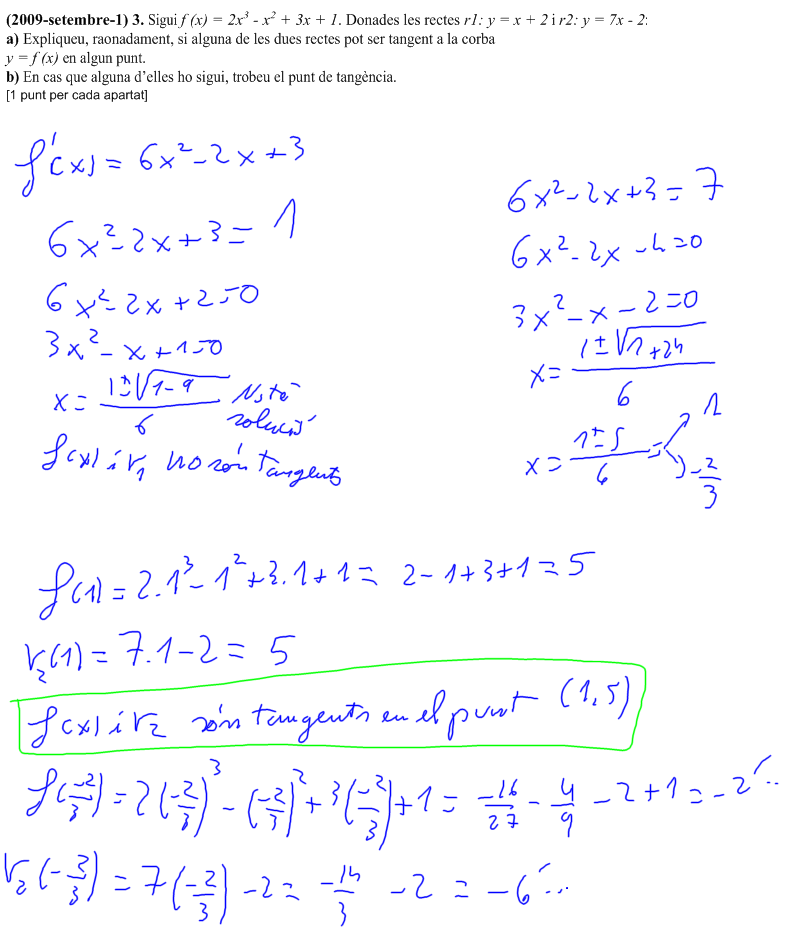 (2009-setembre-1) 3. Sigui f (x) = 2x³ - x² + 3x + 1. Donades les rectes r1: y = x + 2 i r2: y = 7x - 2:
a) Expliqueu, raonadament, si alguna de les dues rectes pot ser tangent a la corba
y = f (x) en algun punt.
b) En cas que alguna d'elles ho sigui, trobeu el punt de tangència.
[1 punt per cada apartat]
f'(x) = 6x² - 2x + 3
6x² - 2x + 3 = 1
6x² - 2x + 2 = 0
3x² - x + 1 = 0
x = (1 ± √(1 - 9)) / 6 No té
solució
f(x) i r₁ no són tangents
6x² - 2x + 3 = 7
6x² - 2x - 4 = 0
3x² - x - 2 = 0
x = (1 ± √(1 + 24)) / 6
x = (1 ± 5) / 6 = 1
-2/3
f(1) = 2·1³ - 1² + 3·1 + 1 = 2 - 1 + 3 + 1 = 5
r₂(1) = 7·1 - 2 = 5
f(x) i r₂ són tangents en el punt (1,5)
f(-2/3) = 2(-2/3)³ - (-2/3)² + 3(-2/3) + 1 = -16/27 - 4/9 - 2 + 1 = -2'...
r₂(-2/3) = 7(-2/3) - 2 = -14/3 - 2 = -6'...